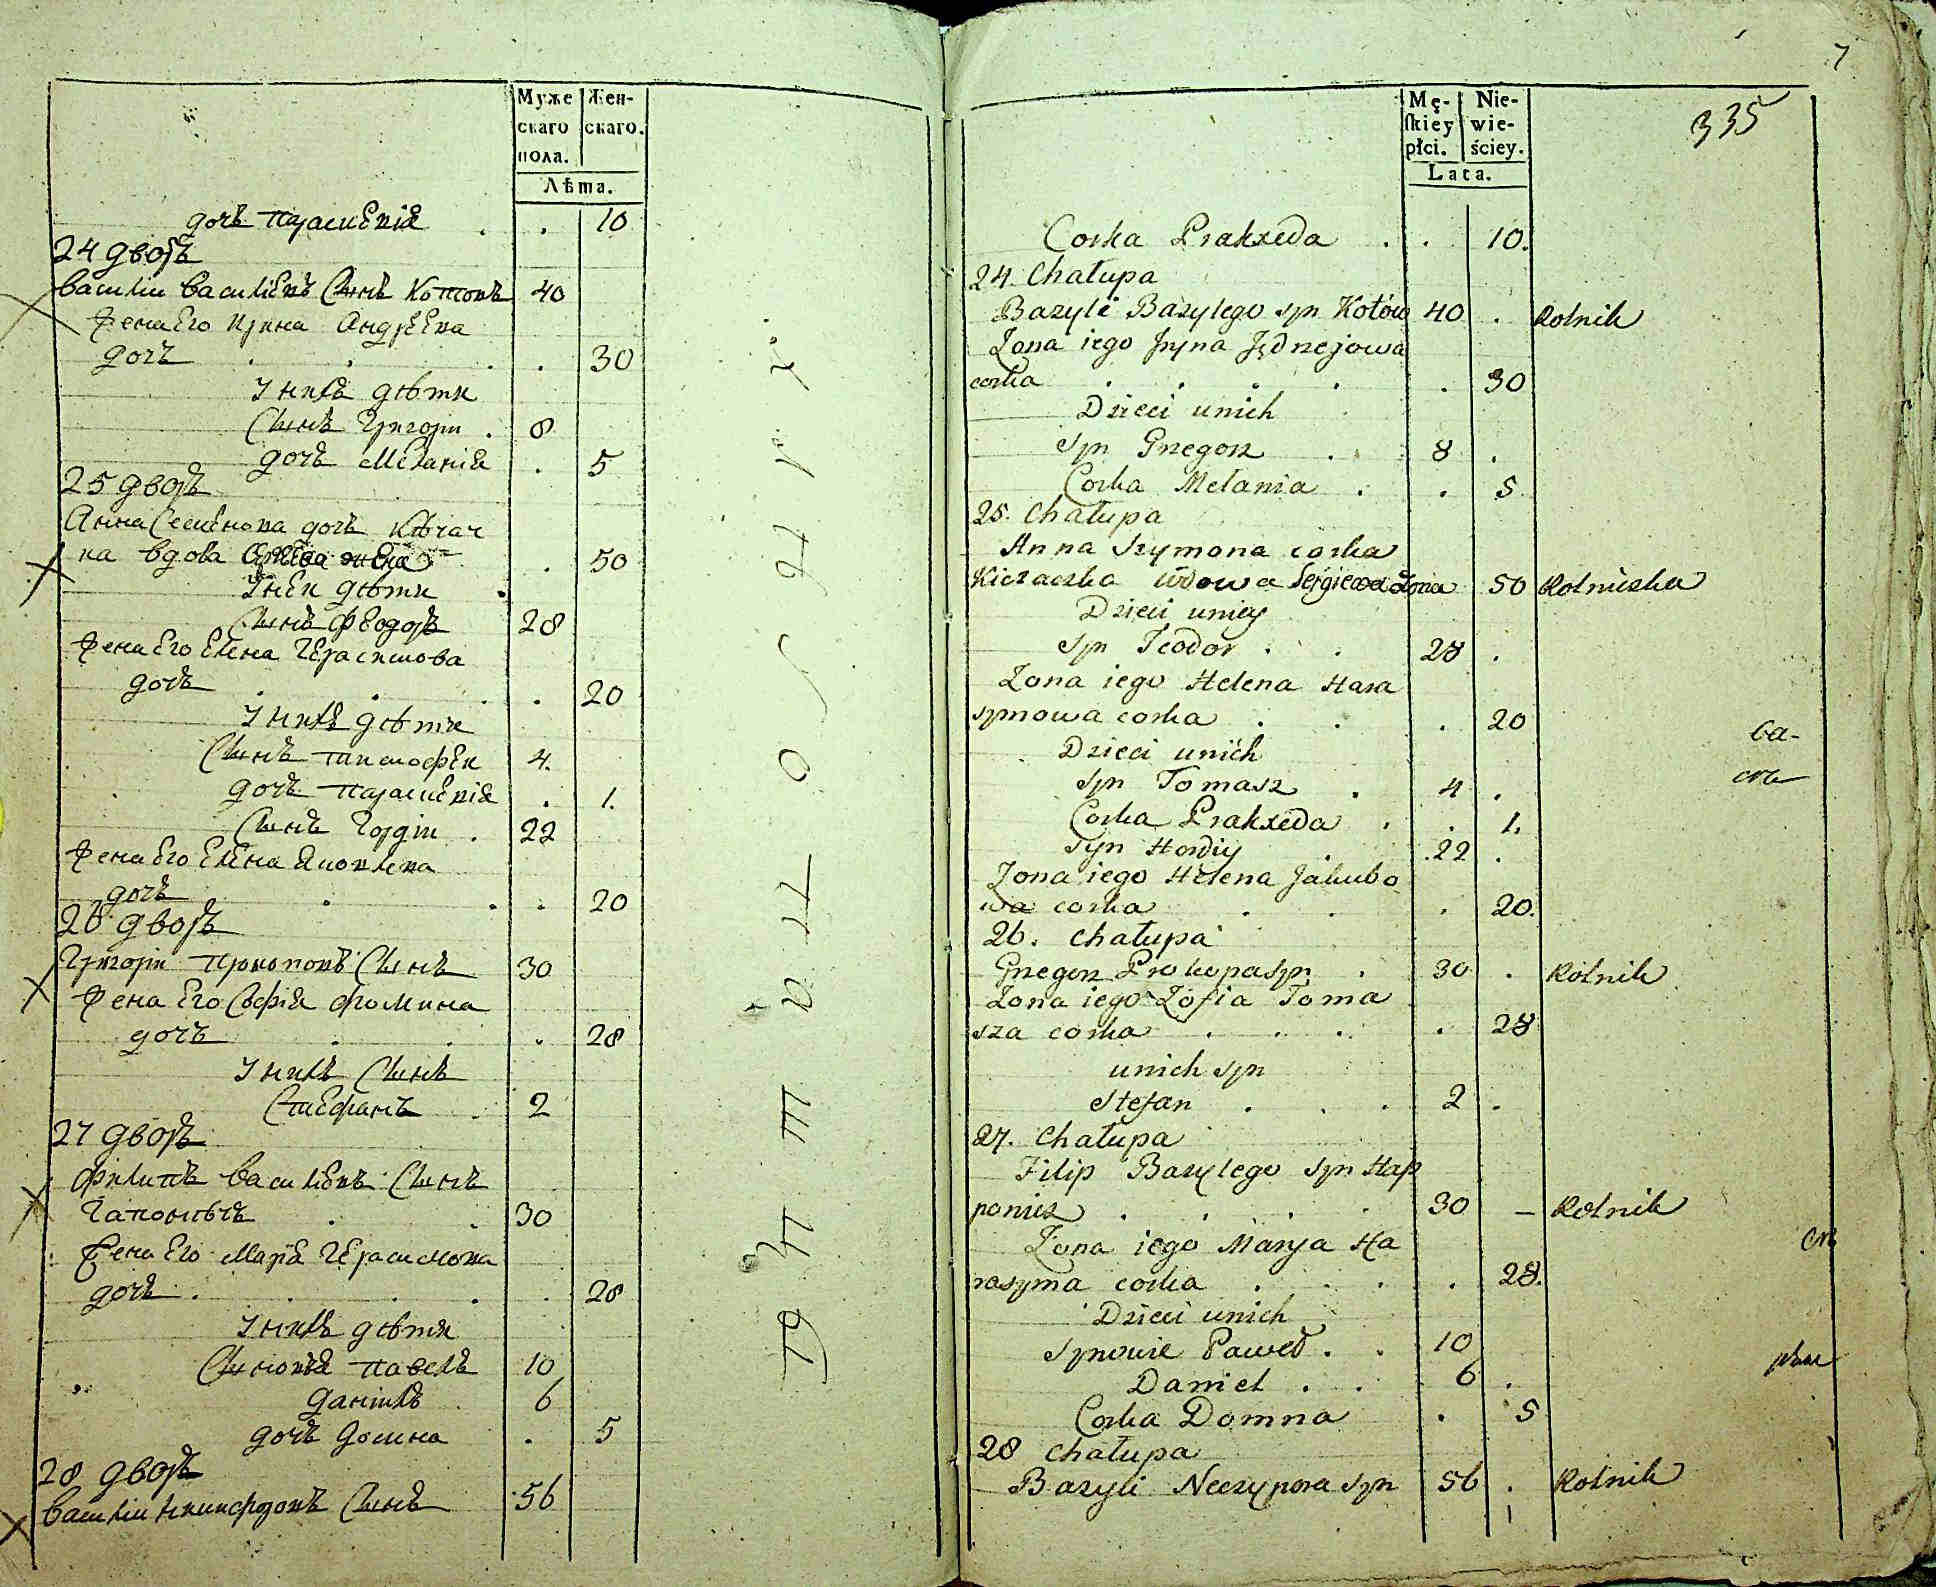 Муже
скаго
пола.
Жен-
скаго.
Лѣта.
дочь Параскевія . . 10
24 дворъ
Василіи Василіевъ Сынъ Котовъ 40
Жена Его Ирина Андрѣева
дочь . . . . 30
У нихъ дѣти
Сынъ Григоріи . 8
дочь Меланія . 5
25 дворъ
Анна Семенова дочь Кѣчач
ка вдова Сергѣева жена . 50
У неи дѣти
Сынъ Феодоръ 28
Жена Его Елена Герасимова
дочь . . . . 20
У нихъ дѣти
Сынъ Тимофеи 4.
дочь Параскевія . 1.
Сынъ Гордіи . 22
Жена Его Елена Яковлева
дочь . . . 20
26 дворъ
Григоріи Прокоповъ Сынъ 30
Жена Его Софія Фомина
дочь . . . 28
У нихъ Сынъ
Стефанъ . 2
27 дворъ
Филипъ Василіевъ Сынъ
Гапонѣчъ . . 30
Жена Его Марія Герасимова
дочь . . . . . 28
У нихъ дѣти
Сыновья Павелъ 10
Данилъ 6
дочь Домна . 5
28 дворъ
Василіи Никифоровъ Сынъ 56
7
335
Mę-
skiey
płci.
Nie-
wie-
ściey.
Lata.
Corka Prakxeda . . 10.
24. Chałupa
Bazyli Bazylego syn Kotów 40 . Rolnik
Zona iego Jryna Jędrzejowa
corka . . . . . 30
Dzieci unich
syn Grzegorz . . 8 .
Corka Melania . . 5
25. Chałupa
Anna Szymona corka
Kieczaczka wdowa Sergiewa Zona 50 Rolniczka
Dzieci uniey
syn Teodor . . 28 .
Zona iego Helena Hara
symowa corka . . . 20
Dzieci unich
syn Tomasz . 4 .
Corka Prakxeda . . 1.
Syn Hordiy . 22 .
Zona iego Helena Jakubo
wa corka . . . 20.
26. Chałupa
Grzegorz Prokopa syn . 30 . Rolnik
Zona iego Zofia Toma
sza corka . . . . 28
unich syn
Stefan . . . 2 .
27. Chałupa
Filip Bazylego Syn Hap
ponicz . . . . 30 – Rolnik
Zona iego Marya Ha
rasyma corka . . . . 28.
Dzieci unich
Synowie Paweł . . 10
Daniel . . 6 .
Corka Domna . 5
28 Chałupa
Bazyli Neczypora syn 56 . Rolnik